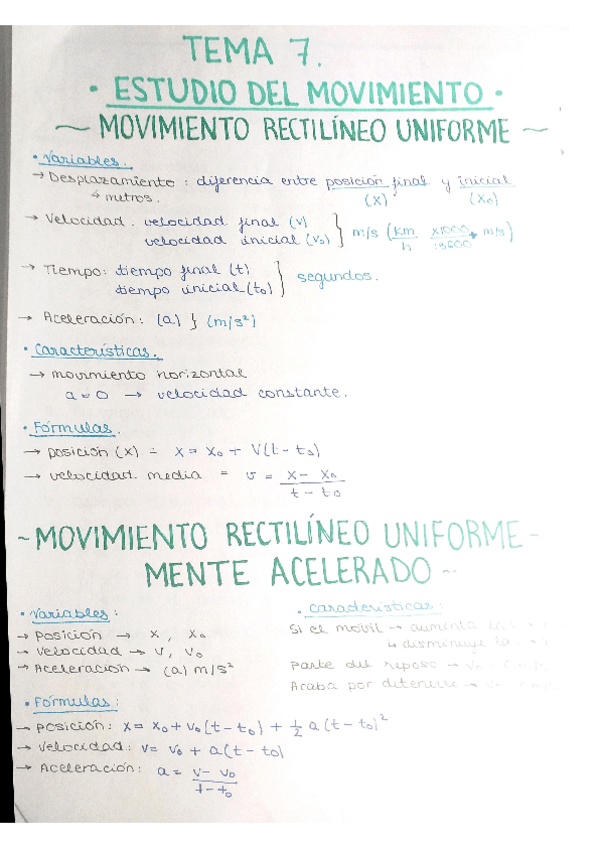 TEMA 7.
• ESTUDIO DEL MOVIMIENTO •
~ MOVIMIENTO RECTILÍNEO UNIFORME ~
• Variables.
→ Desplazamiento : diferencia entre posición final y inicial
↳ metros. (x) (x₀)
→ Velocidad. velocidad final (v)
velocidad inicial (v₀) } m/s (km/h x1000/:3600 → m/s)
→ Tiempo: tiempo final (t)
tiempo inicial (t₀) } segundos.
→ Aceleración: (a) } (m/s²)
• Características.
→ movimiento horizontal
a = 0 → velocidad constante.
• Fórmulas.
→ posición (x) = x = x₀ + V(t - t₀)
→ velocidad. media = v = x - x₀ / t - t₀
~ MOVIMIENTO RECTILÍNEO UNIFORME-
MENTE ACELERADO ~
• Variables :
→ Posición → x, x₀
→ Velocidad → v, v₀
→ Aceleración → (a) m/s²
• Características :
Si el móvil → aumenta
↳ disminuye la
Parte del reposo → v₀
Acaba por detenerse →
• Fórmulas :
→ Posición: x = x₀ + v₀(t - t₀) + ½ a (t - t₀)²
→ Velocidad: v = v₀ + a(t - t₀)
→ Aceleración: a = v - v₀ / t - t₀